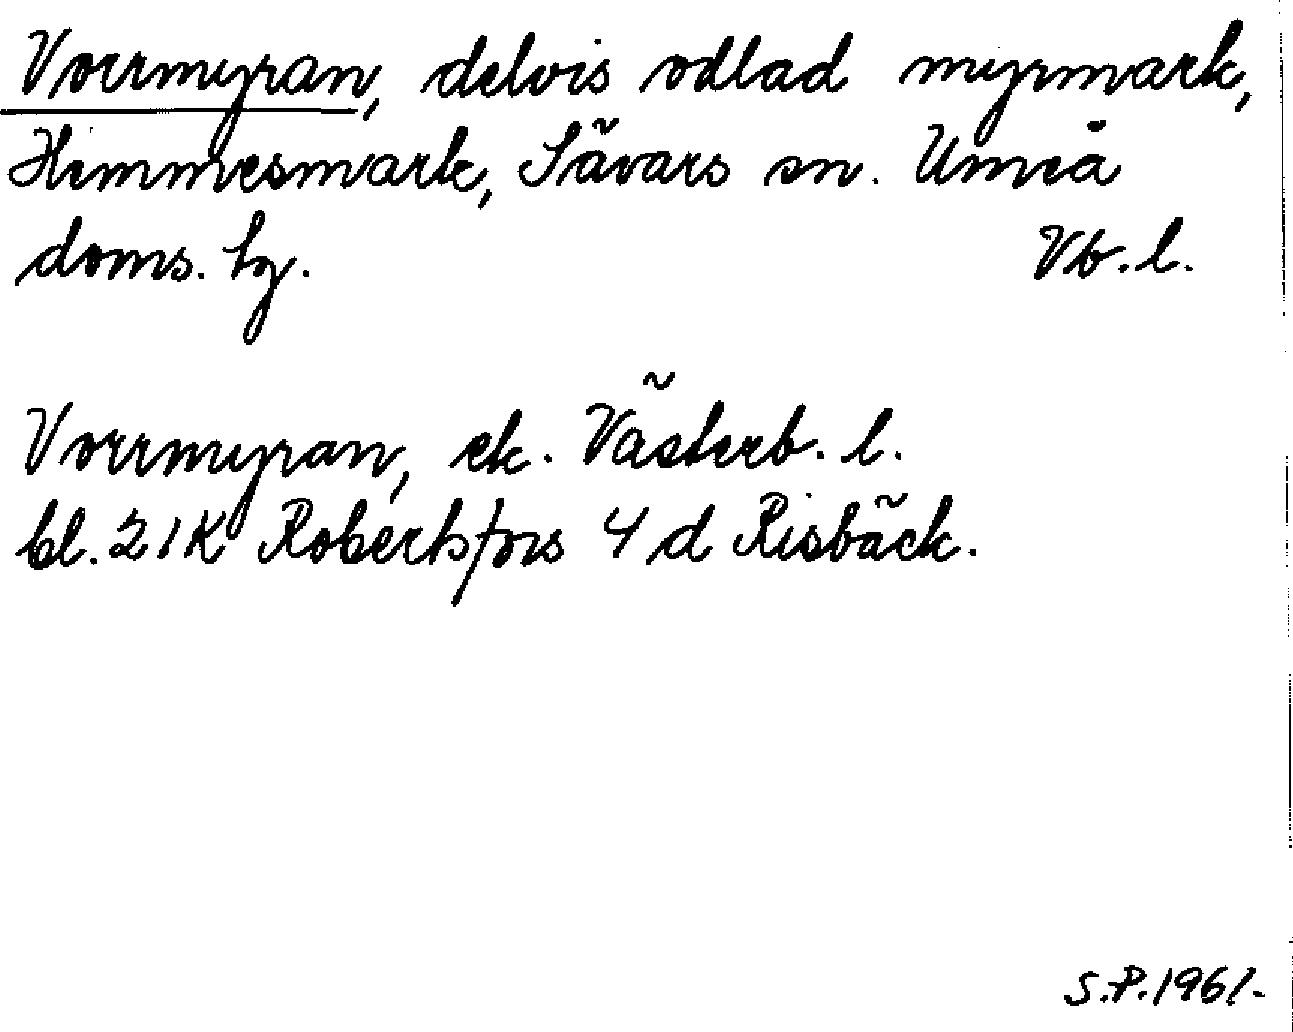 Vorrmyran, delvis odlad myrmark,
Hemmesmark, Sävars sn. Umeå
doms. hg. Vb. l.
Vorrmyran, ek. Västerb. l.
bl. 21K Robertsfors 4 d Risbäck.
S.P. 1961.